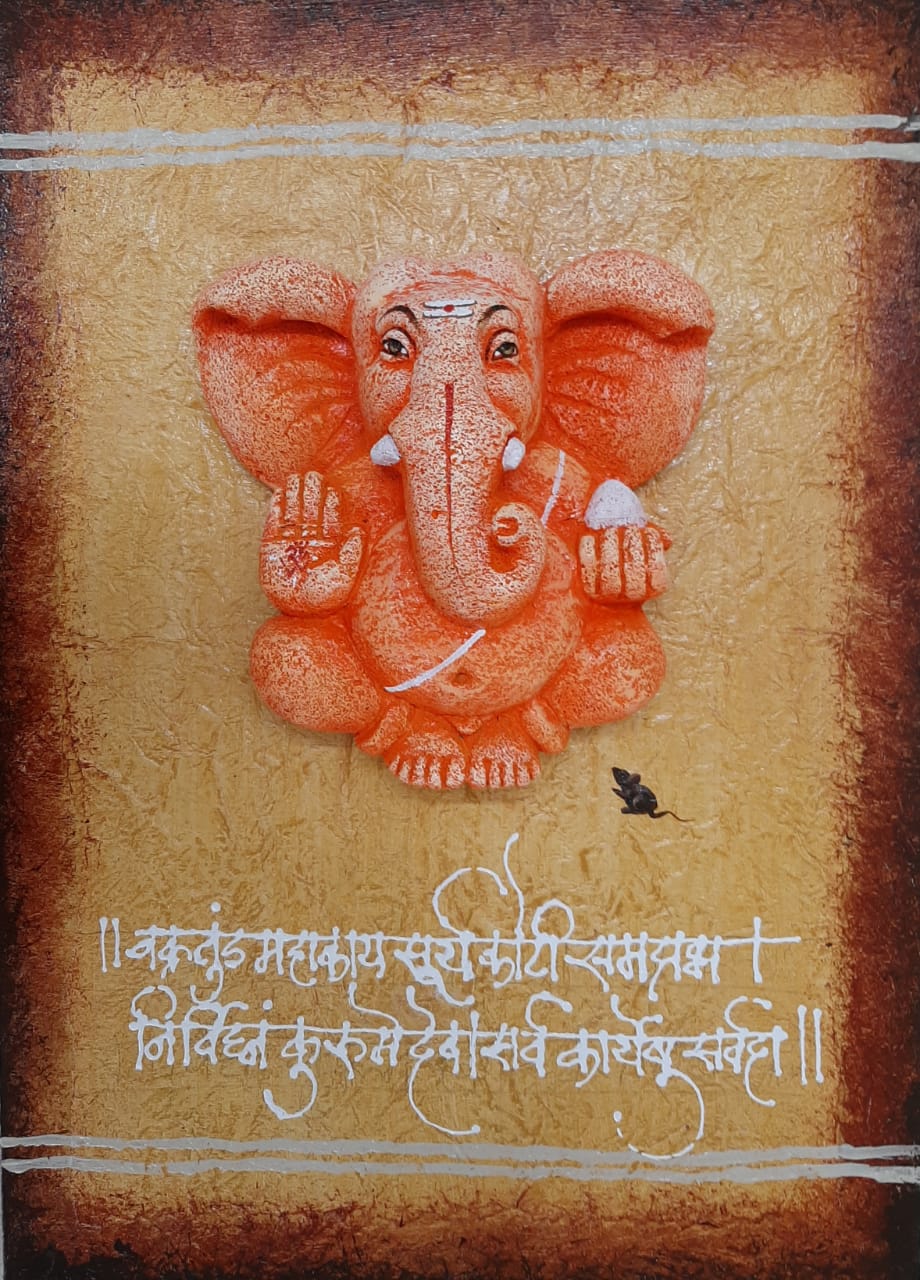 ॥ वक्रतुंड महाकाय सूर्य कोटी समप्रभ ।
निर्विघ्नं कुरु मे देवा सर्व कार्येषु सर्वदा ॥